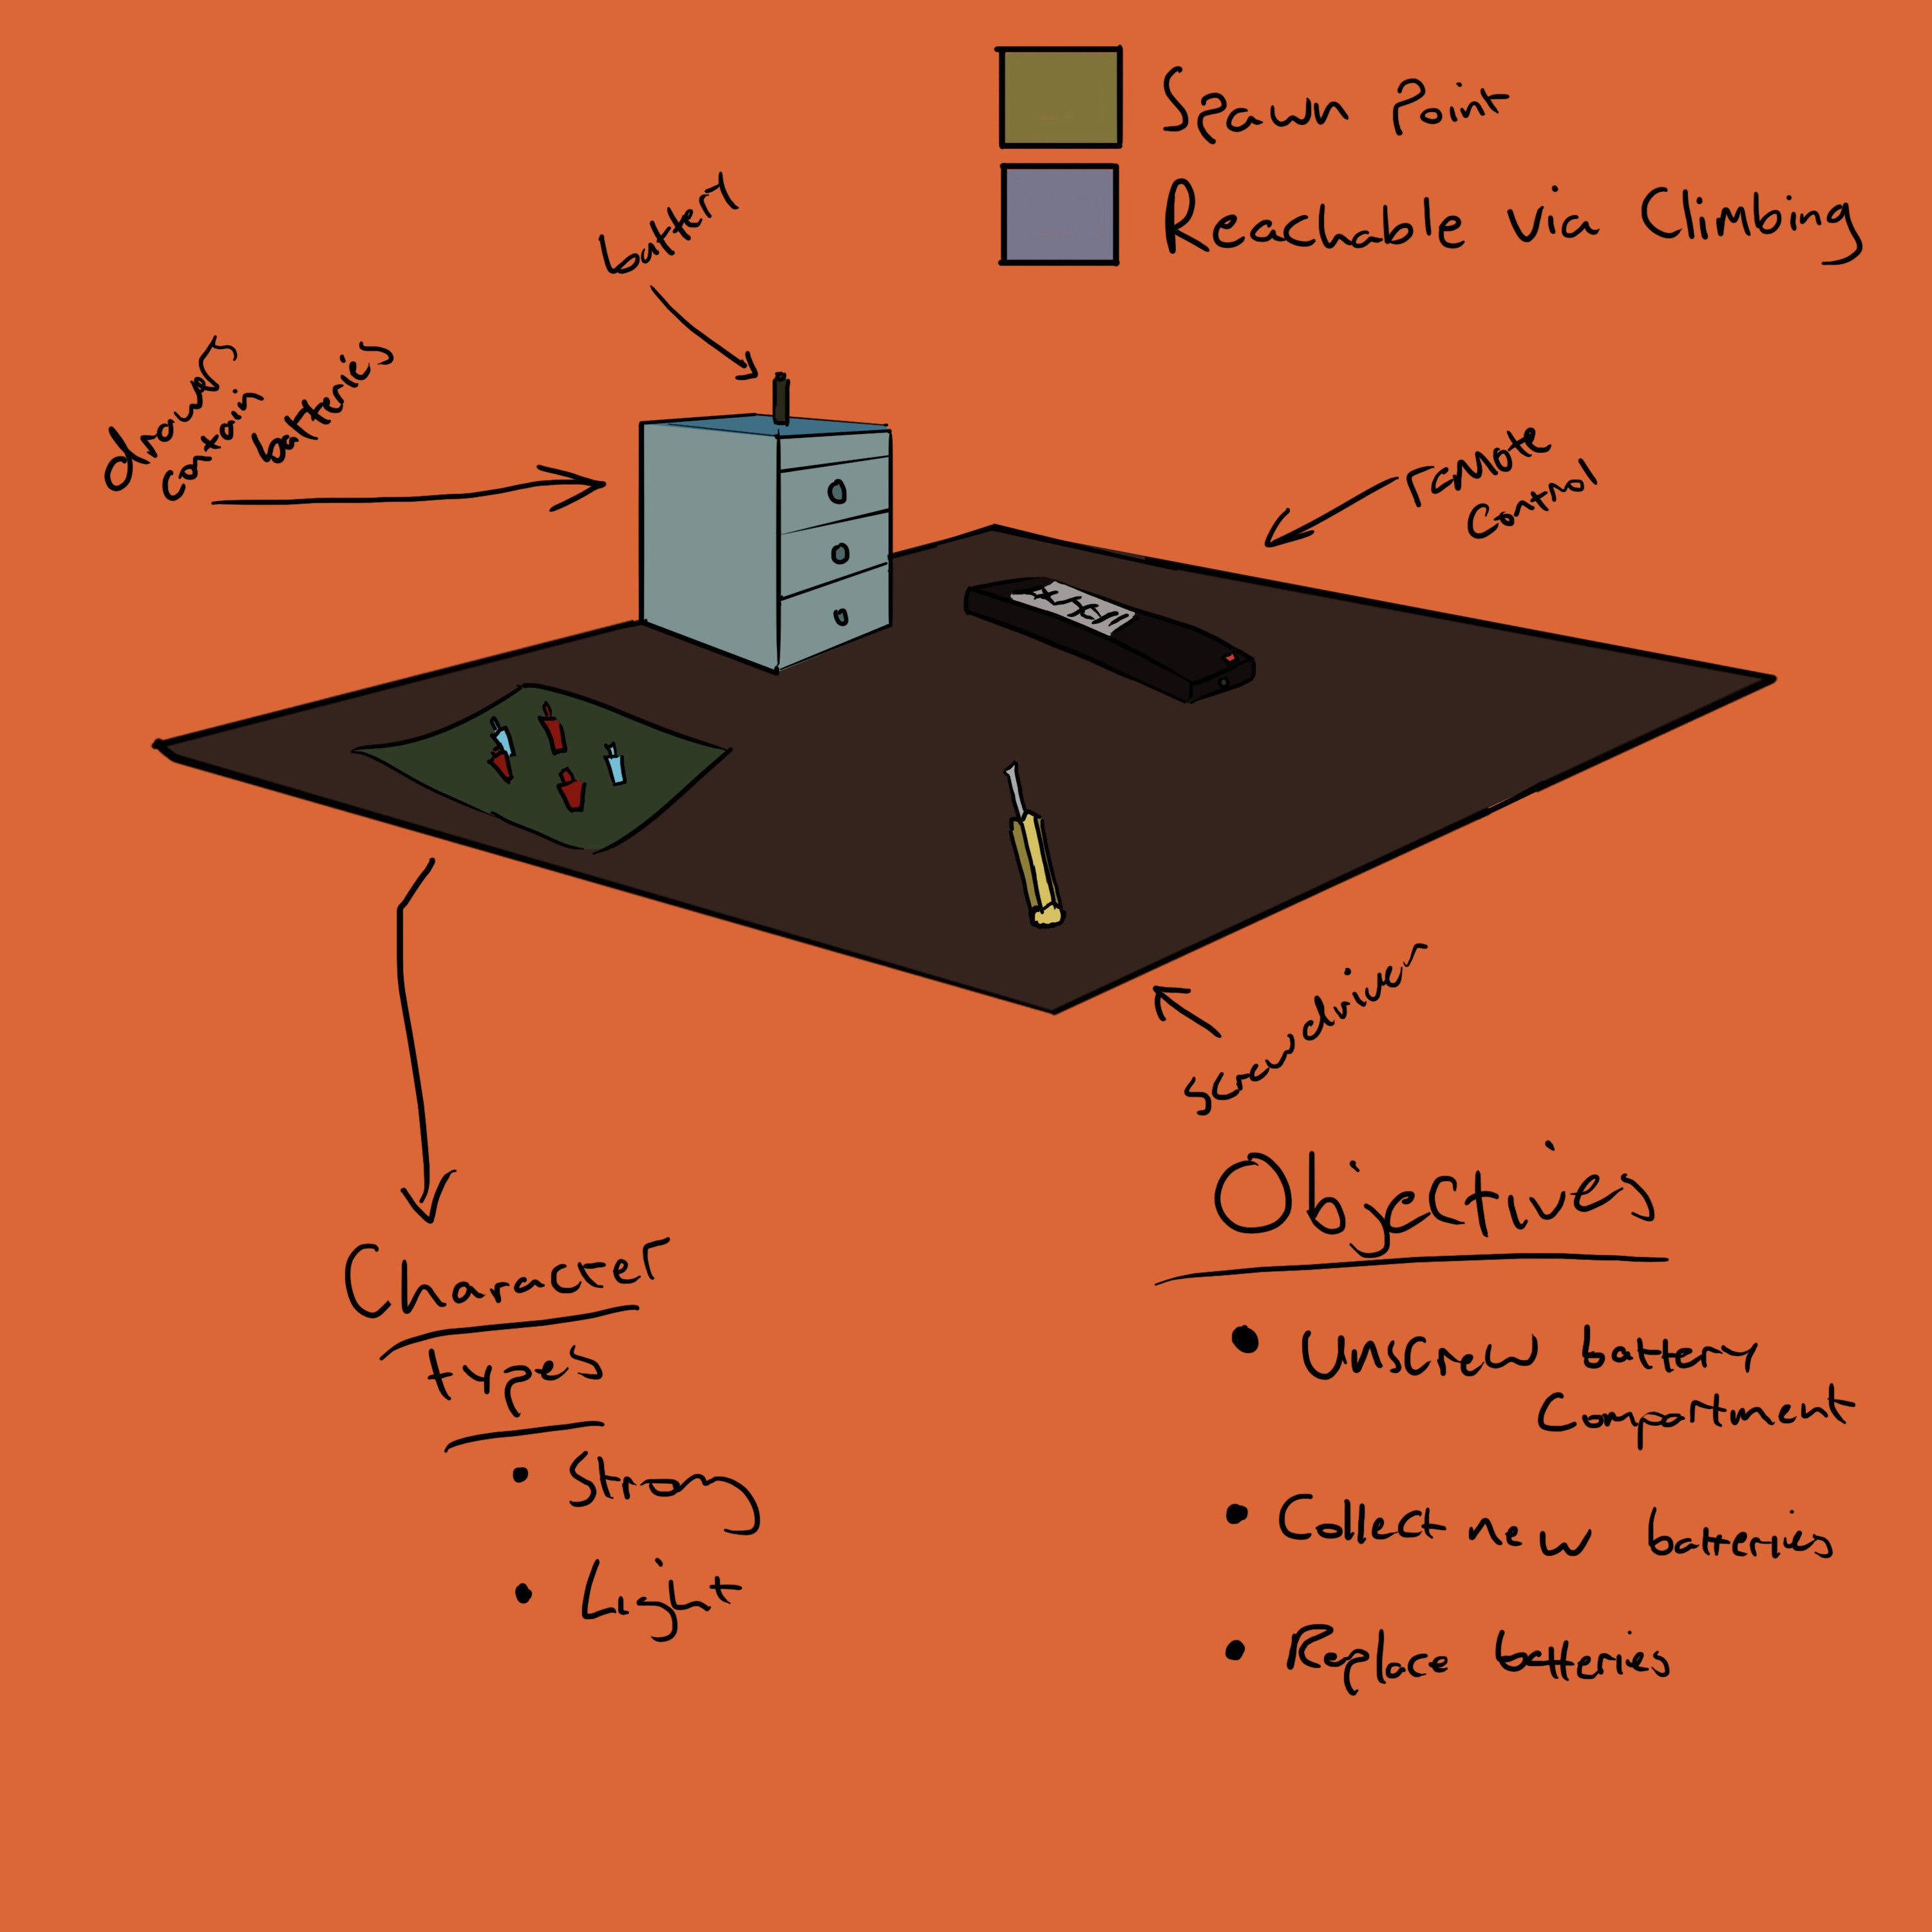 Spawn Point
Reachable via Climbing
battery
drawers
contain
batteries
remote
control
screwdriver
Character
types
• Strong
• Light
Objectives
• unscrew battery
compartment
• Collect new batteries
• Replace batteries